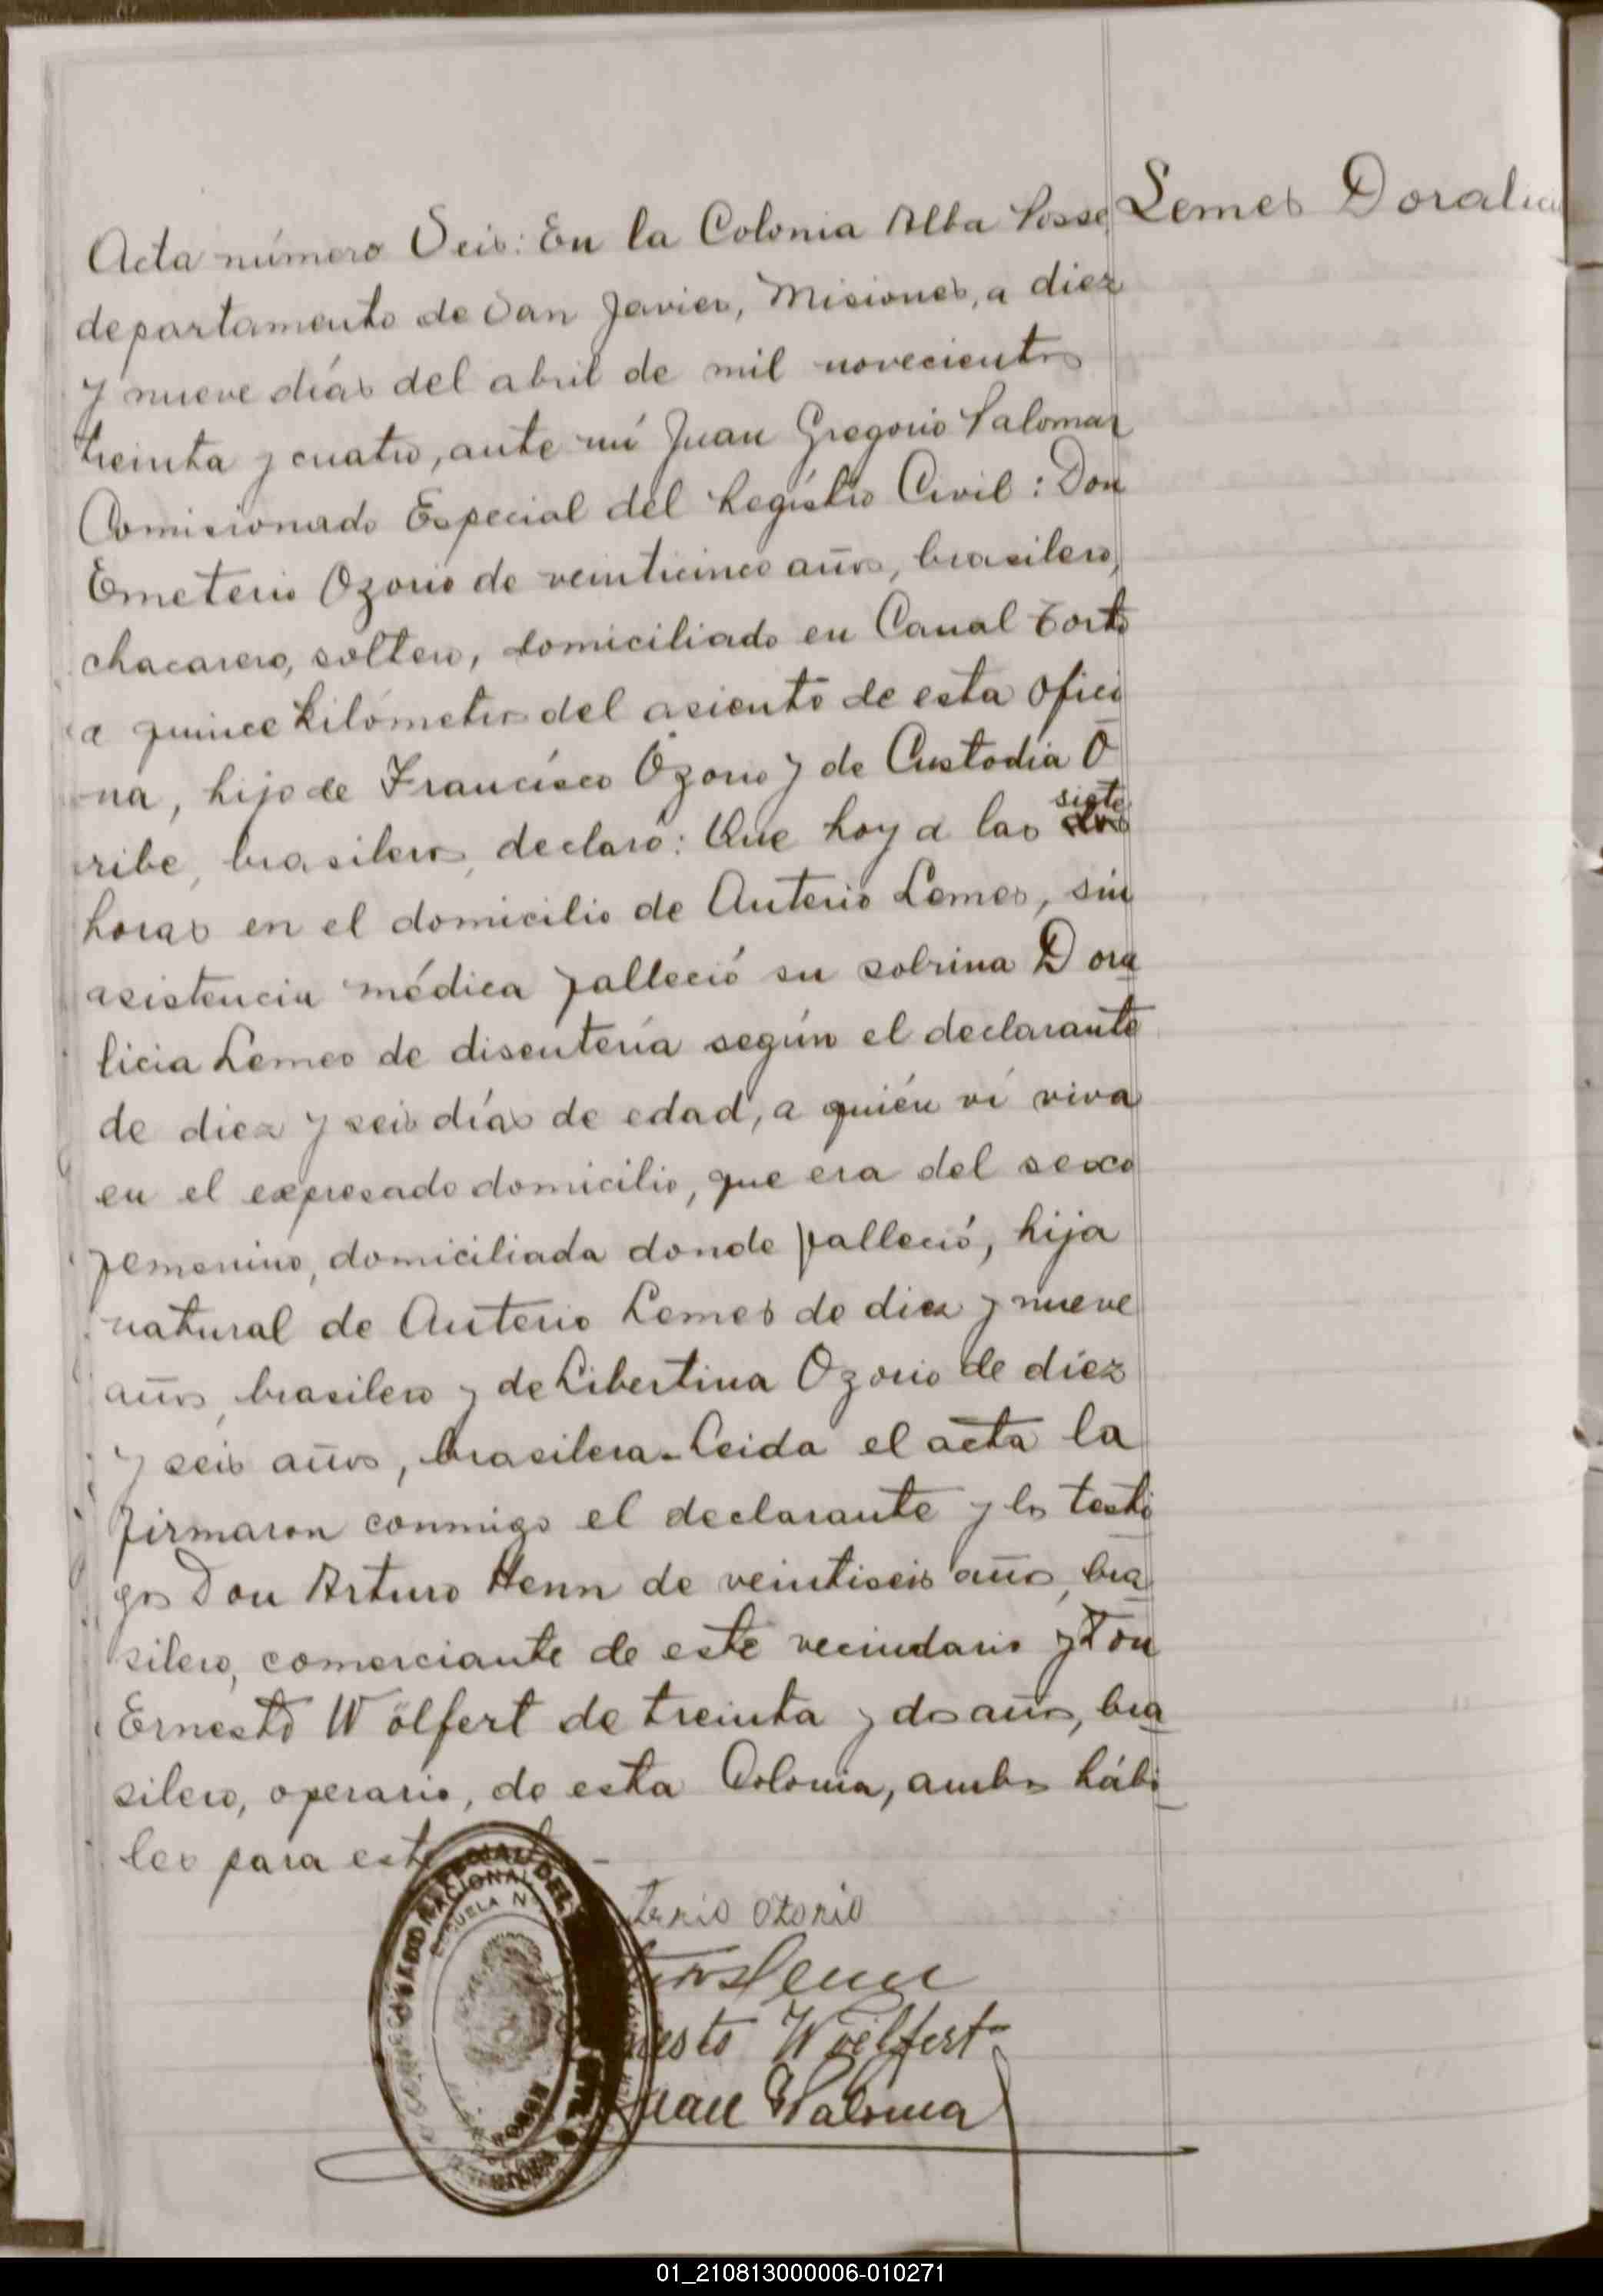 Lemes Doralicia
Acta número Seis: En la Colonia Alba Posse
departamento de San Javier, Misiones, a diez
y nueve días del abril de mil novecientos
treinta y cuatro, ante mí Juan Gregorio Palomar
Comisionado Especial del Registro Civil: Don
Emeterio Ozorio de veinticinco años, brasilero,
chacarero, soltero, domiciliado en Canal Torto
a quince kilómetros del asiento de esta ofici
na, hijo de Francisco Ozorio y de Custodia O
ribe, brasileros, declaró: Que hoy a las siete
horas en el domicilio de Anterio Lemes, sin
asistencia médica falleció su sobrina Dora
licia Lemes de disentería según el declarante
de diez y seis días de edad, a quién ví viva
en el expresado domicilio, que era del sexo
femenino, domiciliada donde falleció, hija
natural de Anterio Lemes de diez y nueve
años, brasilero y de Libertina Ozorio de diez
y seis años, brasilera. Leida el acta la
firmaron conmigo el declarante y los testi
gos Don Arturo Henn de veintiseis años, bra
silero, comerciante de este vecindario y Don
Ernesto Wölfert de treinta y dos años, bra
silero, operario, de esta Colonia, ambos hábi
les para este
terio Ozorio
Henn
nesto Woelfert
Juan Paloma
NACIONAL
ESCUELA N
POSSE
01_210813000006-010271